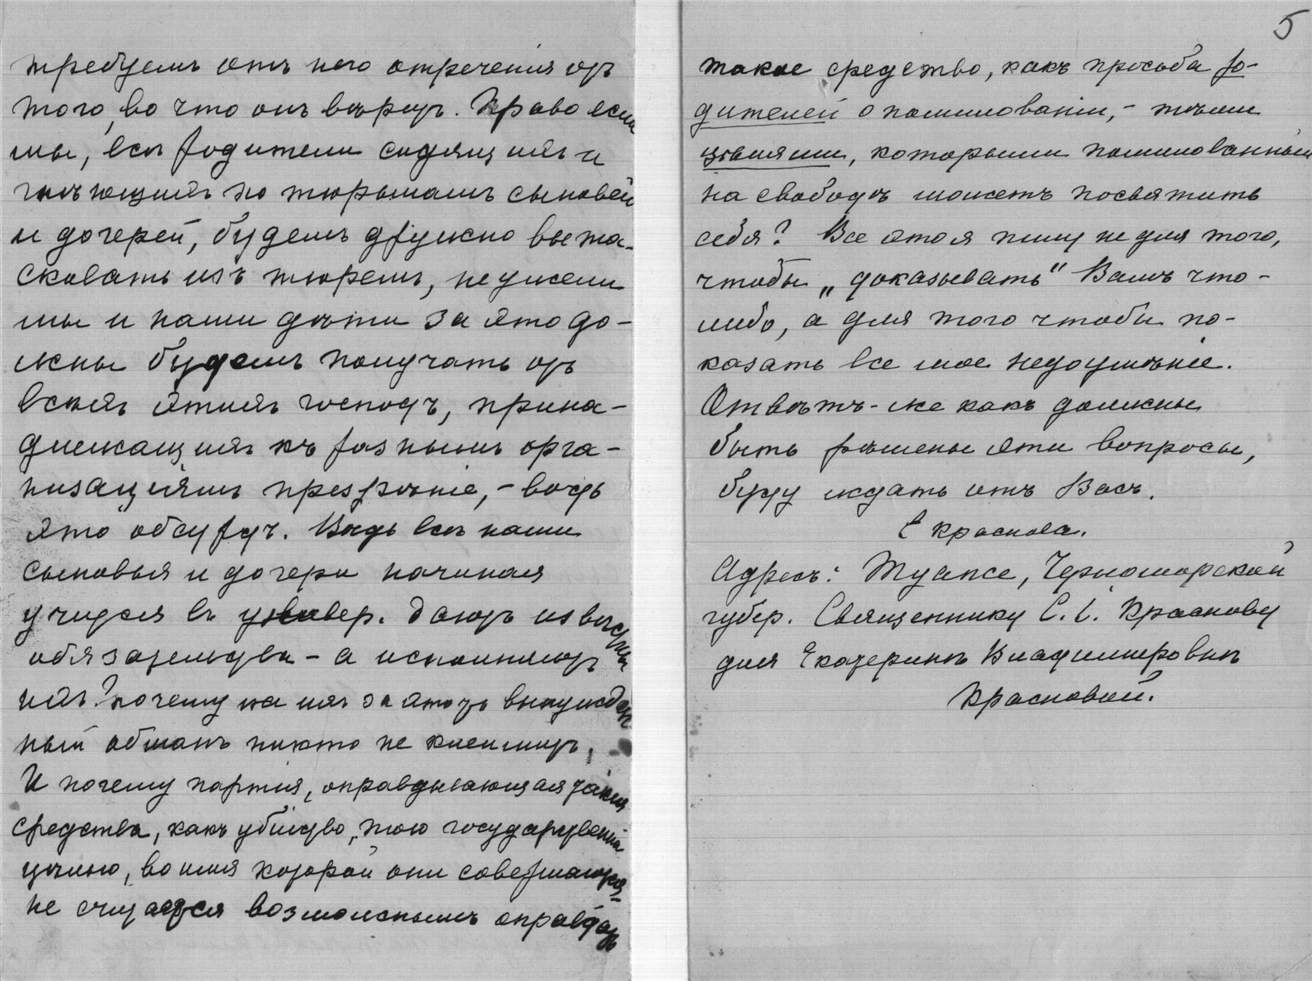 требуемъ отъ него отреченія отъ
того, во что онъ вѣритъ. Право если
мы, всѣ родители сидящихъ и
гніющихъ по тюрьмамъ сыновей
и дочерей, будемъ дружно выта-
скивать изъ тюремъ, неужели
мы и наши дѣти за это до-
лжны будемъ получать отъ
всѣхъ этихъ господъ, прина-
длежащихъ къ разнымъ орга-
низаціямъ презрѣніе, - ведь
это обсурдъ. Ведь всѣ наши
сыновья и дочери начиная
учиться въ универ. даютъ извѣстн
обязательства - а исполняютъ
ихъ? почему на нихъ за этотъ вынужден
ный обманъ никто не клеймитъ.
И почему партія, оправдывающая такія
средства, какъ убійство, тою государственно
цѣлью, во имя которой они совершаются
не считается возможнымъ оправдать
5
такое средство, какъ просьба ро-
дителей о помилованіи, - тѣми
цѣлями, которыми помилованный
на свободѣ можетъ посвятить
себя? Все это я пишу не для того,
чтобы „доказывать" Вамъ что-
либо, а для того чтобы по-
казать все мое недоумѣніе.
Отвѣтъ-же какъ должны
быть рѣшены эти вопросы,
буду ждать отъ Васъ.
Е Краснова.
Адресъ: Туапсе, Черноморской
губер. Священнику С. І. Краснову
для Екатерины Владимировны
Красновой.